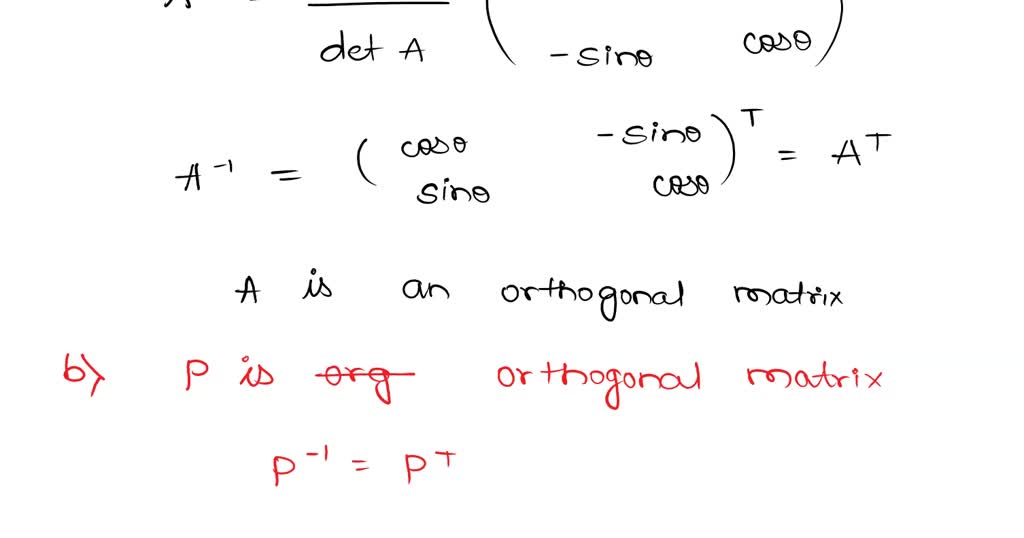 det A
-sinθ cosθ
A⁻¹ = ( cosθ -sinθ )ᵀ = Aᵀ
sinθ cosθ
A is an orthogonal matrix
b) P is org orthogonal matrix
P⁻¹ = Pᵀ